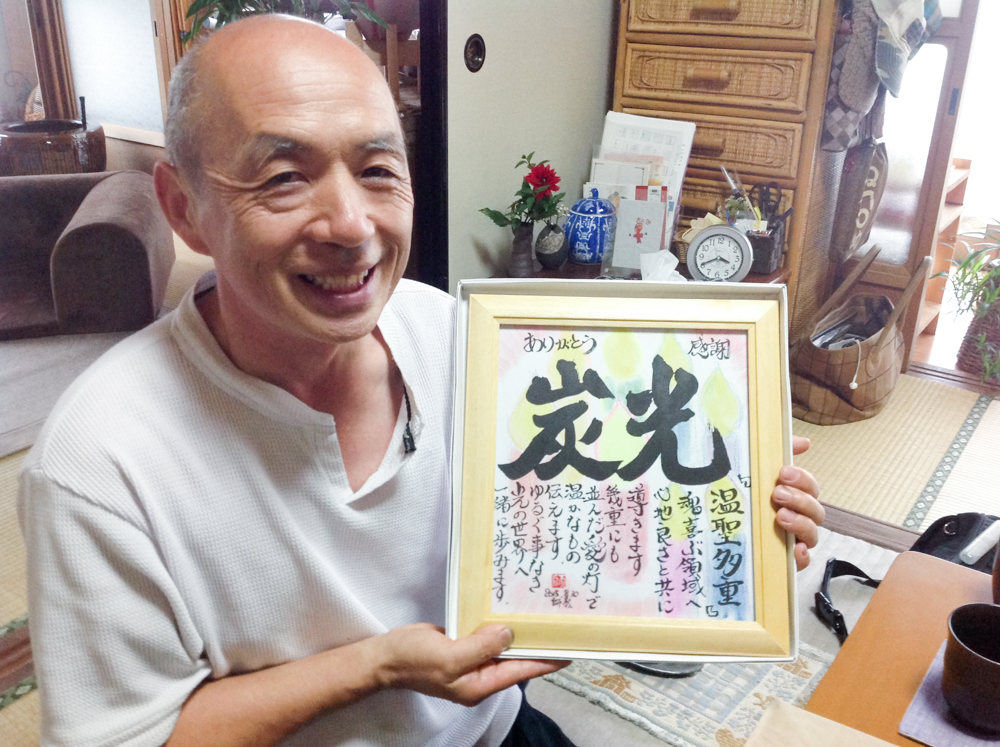 感謝
ありがとう
光炭
『温聖多重』
魂喜ぶ領域へ
心地良さと共に
導きます
幾重にも
並んだ愛の灯で
温かなもの
伝えます
ゆるぐ事なき
光の世界へ
一緒に歩みます。